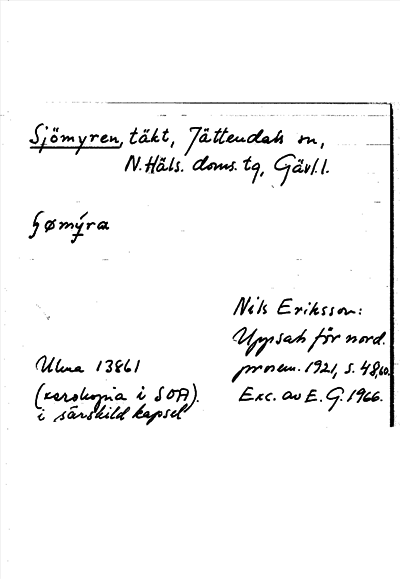 Sjömyren, täkt, Jättendals sn,
N. Häls. doms. tg, Gävl. l.
ʃømýra
Nils Eriksson:
Uppsats för nord.
prosem. 1921, s. 48,60.
Exc. av E. G. 1966.
Uluna 13861
(xerokopia i SOA).
i särskild kapsel